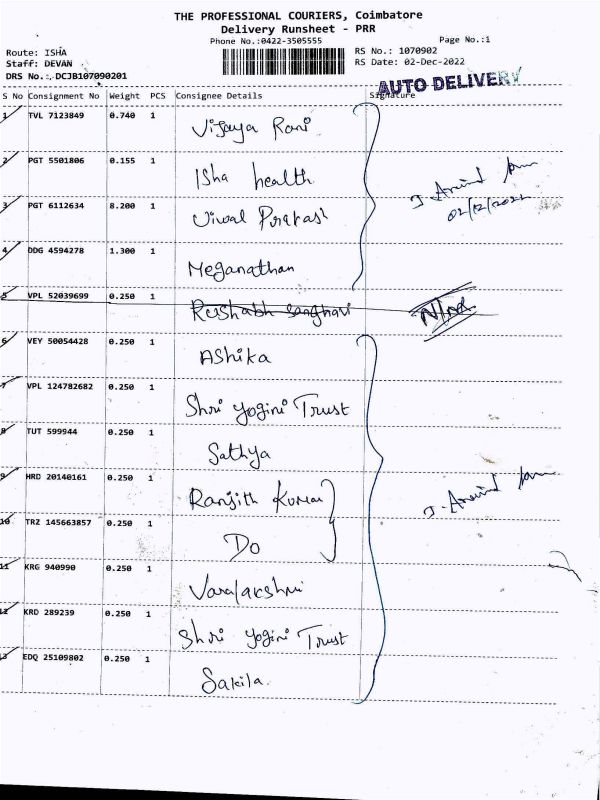 THE PROFESSIONAL COURIERS, Coimbatore
Delivery Runsheet - PRR
Phone No.:0422-3505555
Page No.:1
Route: ISHA
RS No.: 1070902
Staff: DEVAN
RS Date: 02-Dec-2022
DRS No.:.DCJB107090201
AUTO DELIVERY
S No Consignment No Weight PCS Consignee Details Signature
1 TVL 7123849 0.740 1 Vijaya Rani
2 PGT 5501806 0.155 1 Isha health
3 PGT 6112634 8.200 1 Prakash
02/12/2022
4 DDG 4594278 1.300 1 Meganathan
5 VPL 52039699 0.250 1 Rushabh Sanghavi
6 VEY 50054428 0.250 1 Ashika
7 VPL 124782682 0.250 1 Shri Yogini Trust
8 TUT 599944 0.250 1 Sathya
9 HRD 20140161 0.250 1 Ranjith Kumar
10 TRZ 145663857 0.250 1 Do
11 KRG 940990 0.250 1 Varalakshmi
12 KRD 289239 0.250 1 Shri Yogini Trust
13 EDQ 25109802 0.250 1 Sakila